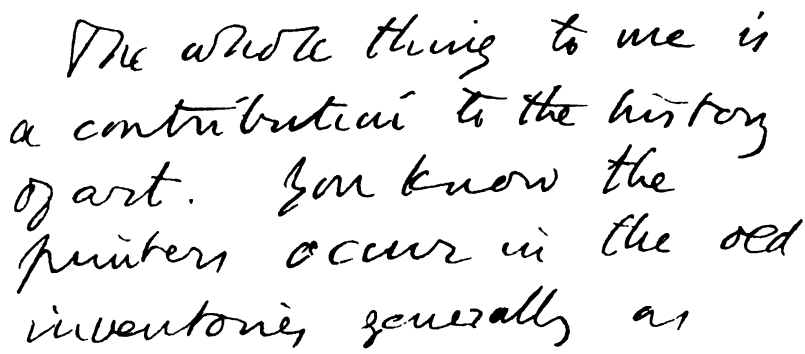 The whole thing to me is
a contribution to the history
of art. You know the
printers occur in the old
inventories generally as